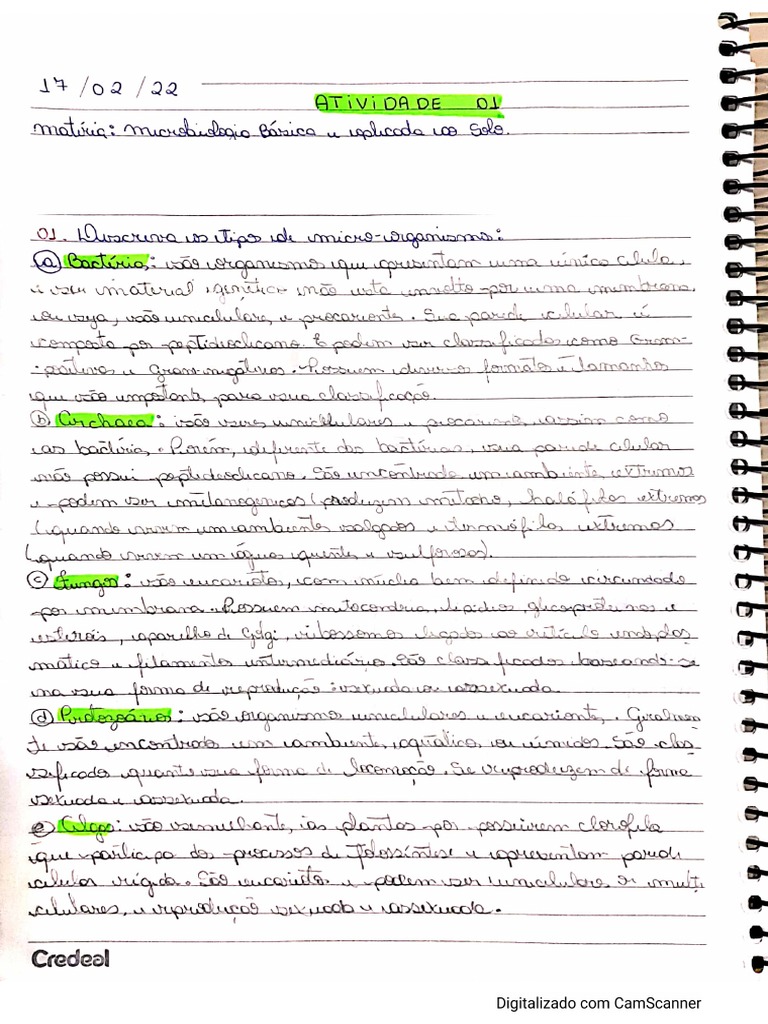 17/02/22
ATIVIDADE 01
Matéria: Microbiologia Básica e aplicada ao Solo.
01. Descreva os tipos de micro-organismos:
(a) Bactéria: são organismos que apresentam uma única célula,
e seu material genético não está envolto por uma membrana,
ou seja, são unicelulares, e procarionte. Sua parede celular é
composta por peptideoclicano. E podem ser classificados como Gram-
-positivos e Gram-negativos. Possuem diversos formatos e tamanhos
que são importante, para sua classificação.
(b) Archaea: são seres unicelulares e procariono, assim como
as bactéria. Porém, diferente das bactérias, sua parede celular
não possui peptideoclicano. São encontrado em ambiente, extremos
e podem ser metanogenicos (produzem metano, halófilos extremos
(quando vivem em ambiente salgados e termófilos extremos
(quando vivem em águas quentes e sulforosas).
(c) Fungos: são eucarioto, com núcleo bem definido circundado
por membrana. Possuem mitocondria, lepideos, glicoproteinas e
esterois, aparelho de Golgi, ribossomos ligados ao retículo endoplas
mático e filamentos intermediário. São classificados baseando-se
na sua forma de reprodução: sexuada ou assexuada.
(d) Protozoários: são organismo unicelulares e eucarionte,. Geralmen
te são encontrado em ambiente, aquático, ou úmidos. São clas
sificados quanto sua forma de locomoção. Se reproduzem de forma
sexuada e assexuada.
(e) Algas: são semelhante, às plantas por possuirem clorofila
que participa dos processos de fotossíntese e apresentam parede
celular rígida. São eucarioto e podem ser unicelulares e multi
celulares, e reprodução sexuada e assexuada.
Credeal
Digitalizado com CamScanner